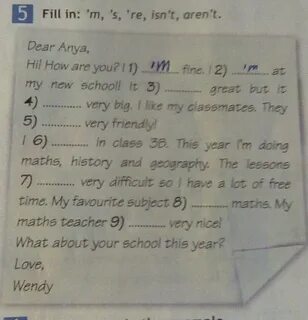 5 Fill in: 'm, 's, 're, isn't, aren't.
Dear Anya,
Hi! How are you? I 1) 'm fine. I 2) 'm at
my new school! It 3) ............ great but it
4) ............ very big. I like my classmates. They
5) ............ very friendly!
I 6) ............ in class 3B. This year I'm doing
maths, history and geography. The lessons
7) ............ very difficult so I have a lot of free
time. My favourite subject 8) ............ maths. My
maths teacher 9) ............ very nice!
What about your school this year?
Love,
Wendy